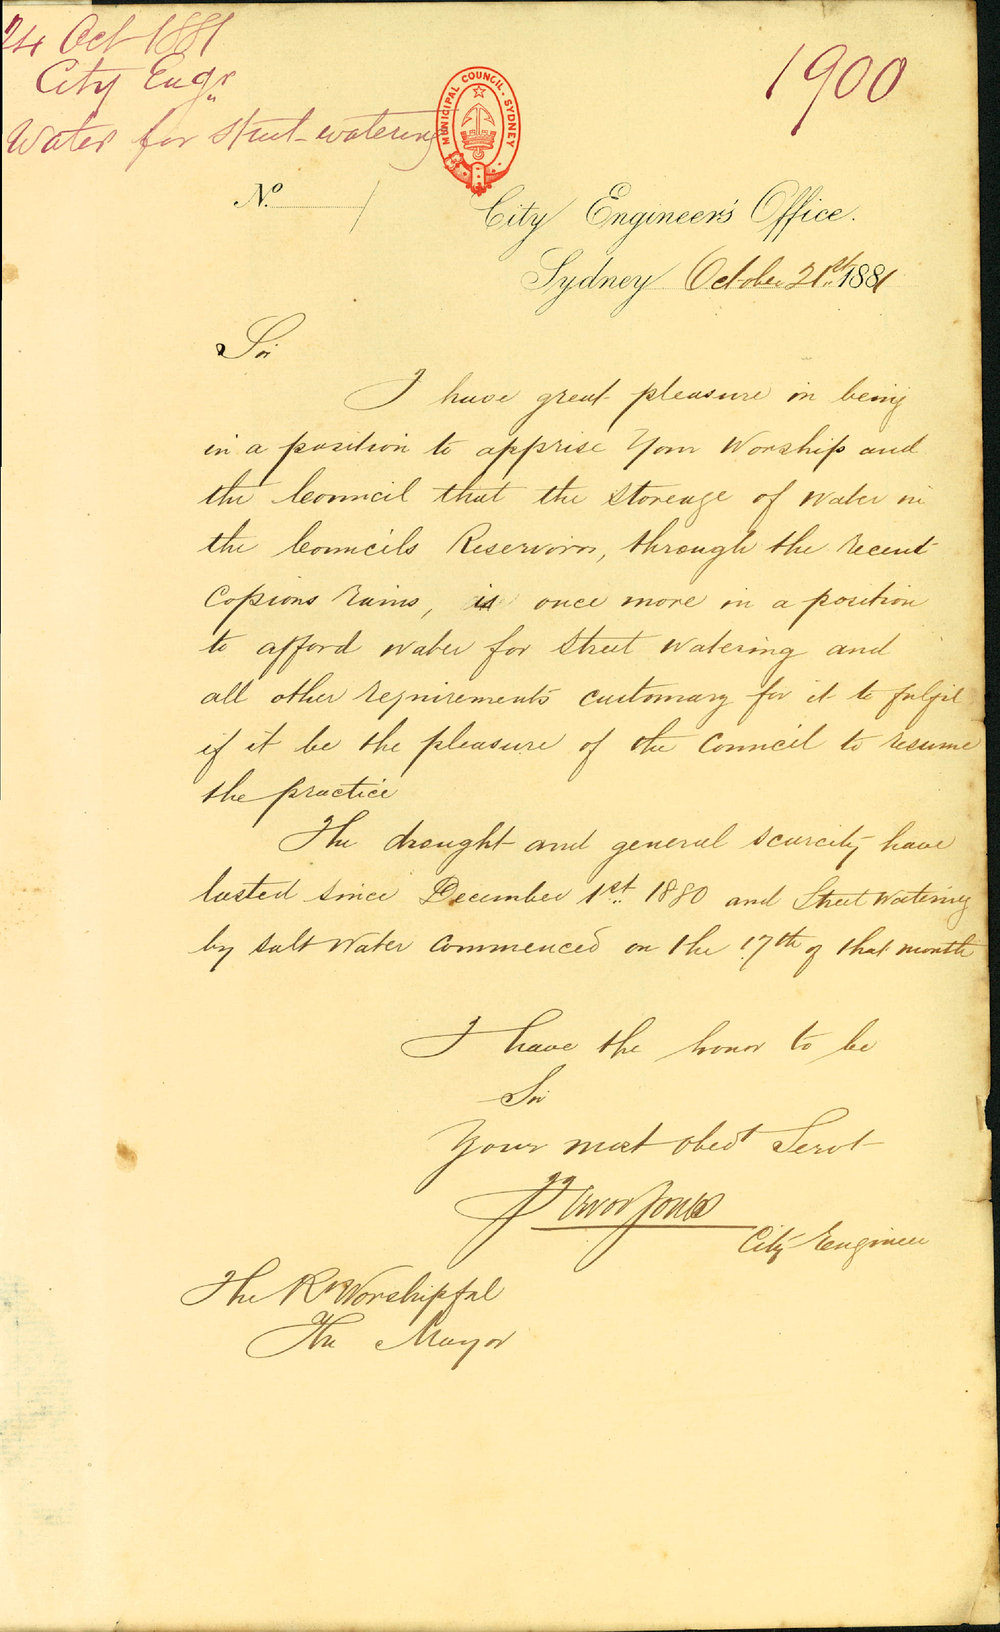 24 Oct 1881
City Engr
Water for Street-watering
1900
MUNICIPAL COUNCIL. SYDNEY
No /
City Engineer's Office.
Sydney October 21st. 1881
Sir
I have great pleasure in being
in a position to apprise Your Worship and
the Council that the storeage of water in
the Councils Reservoirs, through the recent
Copious rains, is once more in a position
to afford water for Street watering and
all other requirements customary for it to fulfil
if it be the pleasure of the Council to resume
the practice
The drought and general scarcity have
lasted since December 1st. 1880 and Street Watering
by salt water commenced on the 17th of that month
I have the honor to be
Sir
Your most obedt Servt
Trevor Jones
City Engineer
The Rt Worshipful
The Mayor